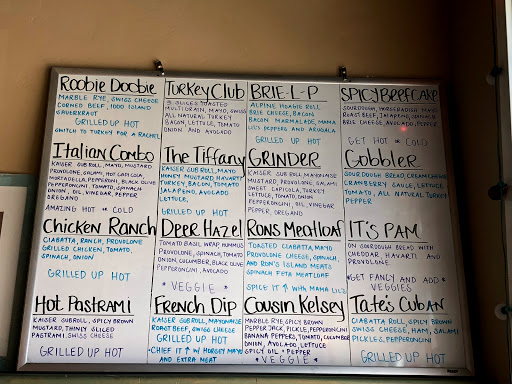 Roobie Doobie
MARBLE RYE, SWISS CHEESE
CORNED BEEF, 1000 ISLAND
SAUERKRAUT
GRILLED UP HOT
SWITCH TO TURKEY FOR A RACHEL
Turkey Club
3 SLICES TOASTED
MULTIGRAIN, MAYO, SWISS
ALL NATURAL TURKEY
BACON, LETTUCE, TOMATO
ONION AND AVOCADO
BRIE-L-P
ALPINE HOAGIE ROLL
BRIE CHEESE, BACON
BACON MARMALADE, MAMA
LIL'S PEPPERS AND ARUGALA
GRILLED UP HOT
SPICY BEEFCAKE
SOURDOUGH, HORSERADISH MAYO
ROAST BEEF, JALAPENO, SPINACH
BRIE CHEESE, AVOCADO, PEPPER
GET HOT OR COLD
Italian Combo
KAISER SUB ROLL, MAYO, MUSTARD
PROVOLONE, SALAMI, HOT CAPICOLA,
MORTADELLA, PEPPERONI, BLACK OLIVE
PEPPERONCINI, TOMATO, SPINACH
ONION, OIL, VINEGAR, PEPPER
OREGANO
AMAZING HOT OR COLD
The Tiffany
KAISER SUB ROLL, MAYO
HONEY MUSTARD, HAVARTI
TURKEY, BACON, TOMATO
JALAPENO, AVOCADO
LETTUCE,
GRILLED UP HOT
GRINDER
KAISER SUB ROLL, MAYONNAISE
MUSTARD, PROVOLONE, SALAMI
SWEET CAPICOLA, TURKEY
LETTUCE, TOMATO, ONION
PEPPERONCINI, OIL, VINEGAR
PEPPER, OREGANO
Gobbler
SOURDOUGH BREAD, CREAM CHEESE
CRANBERRY SAUCE, LETTUCE
TOMATO, ALL NATURAL TURKEY
PEPPER
Chicken Ranch
CIABATTA, RANCH, PROVOLONE
GRILLED CHICKEN, TOMATO,
SPINACH, ONION
GRILLED UP HOT
Deer Hazel
TOMATO BASIL WRAP, HUMMUS
PROVOLONE, SPINACH, TOMATO
ONION, CUCUMBER, BLACK OLIVE
PEPPERONCINI, AVOCADO
* VEGGIE *
RONS Meatloaf
TOASTED CIABATTA, MAYO
PROVOLONE CHEESE, SPINACH
AND RON'S ISLAND MEATS
SPINACH FETA MEATLOAF
SPICE IT ↑ WITH MAMA LILS
IT'S PAM
ON SOURDOUGH BREAD WITH
CHEDDAR, HAVARTI AND
PROVOLONE
*GET FANCY AND ADD *
VEGGIES
Hot Pastrami
KAISER SUB ROLL, SPICY BROWN
MUSTARD, THINLY SLICED
PASTRAMI, SWISS CHEESE
GRILLED UP HOT
French Dip
KAISER SUB ROLL, MAYONNAISE
ROAST BEEF, SWISS CHEESE
GRILLED UP HOT
-CHIEF IT ↑ W/ HORSEY MAYO
AND EXTRA MEAT
Cousin Kelsey
MARBLE RYE, SPICY BROWN
PEPPER JACK, PICKLE, PEPPERONCINI
BANANA PEPPERS, TOMATO, CUCUMBER
ONION, AVOCADO, LETTUCE
SPICY OIL * PEPPER
* VEGGIE *
Tate's Cuban
CIABATTA ROLL, SPICY BROWN
SWISS CHEESE, HAM, SALAMI
PICKLES, PEPPERONCINI
GRILLED UP HOT